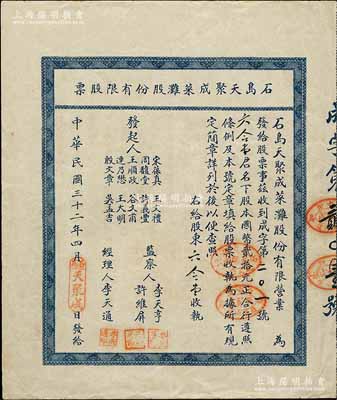 上海阳明拍卖
石島天聚成菜灘股份有限股票
石島天聚成菜灘股份有限營業 為
發給股票事茲收到成字第二〇一號
六合堂君名下股本國幣貳拾元正合行遵照
條例及本號定章填給股票收執為據所有規
定簡章詳列於後以便查照
右給股東 六合堂 收執
發起人
宋蔭真 王天禮
周馥堂 許義豐
王順政 谷文甫
連乃懋 王大明
殷文章 吳孟吉
監察人 李天亨
許維屏
經理人 李天通
中華民國三十二年四月 日發給
天聚成
上海阳明拍卖